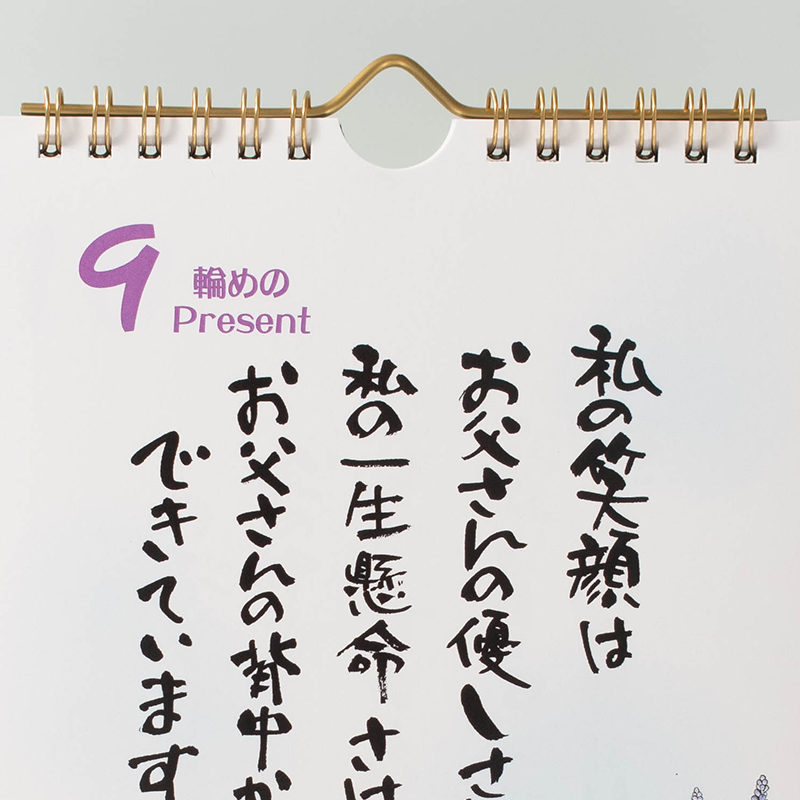 9
輪めの
Present
私の笑顔は
お父さんの優しさ
私の一生懸命さは
お父さんの背中か
できています